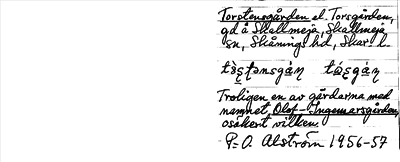 Torstensgården el. Torsgården,
gd å Skallmeja, Skallmeja
sn, Skånings hd, Skar. l.
Troligen en av gårdarna med
namnet Olof-Ingemarsgården,
osäkert vilken.
P-O. Alström 1956-57